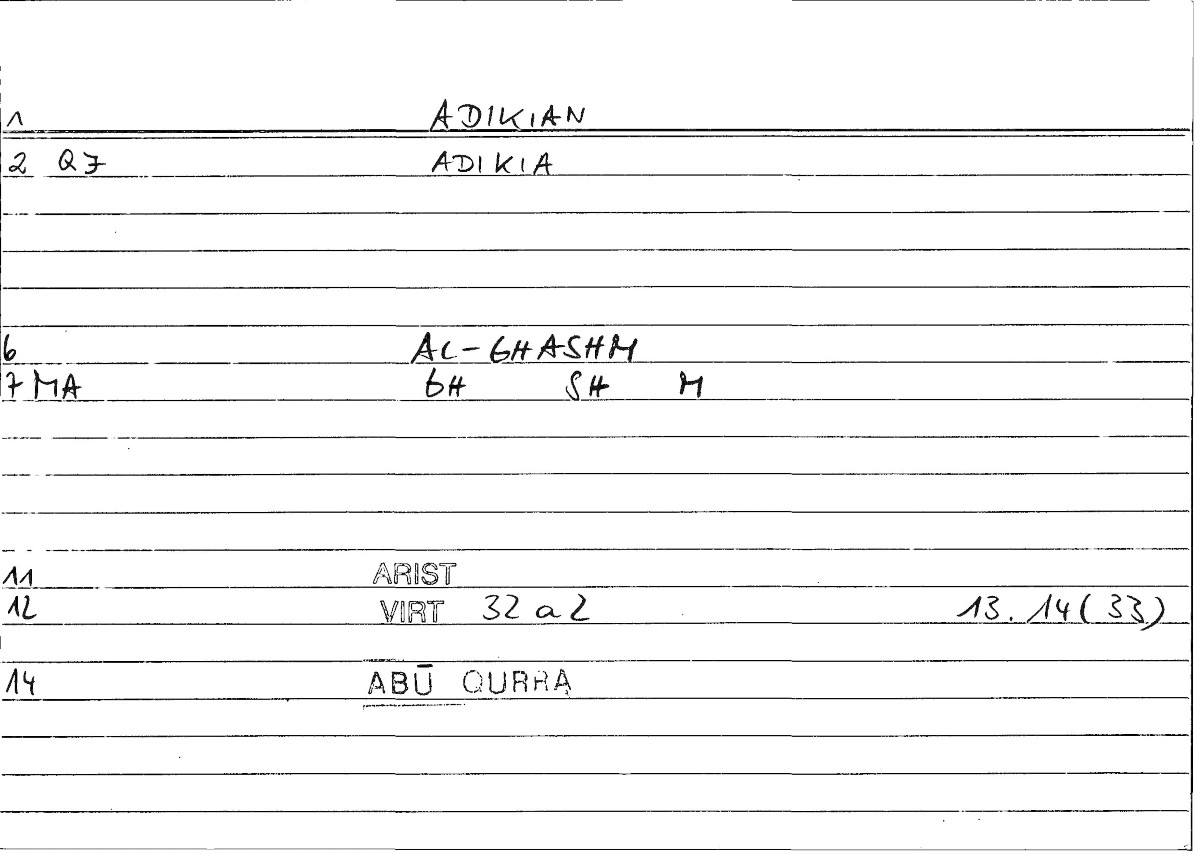 1 ADIKIAN
2 Q7 ADIKIA
6 AL-GHASHM
7 MA GH SH M
11 ARIST
12 VIRT 32 a 2 13. 14 (33)
14 ABŪ QURRA